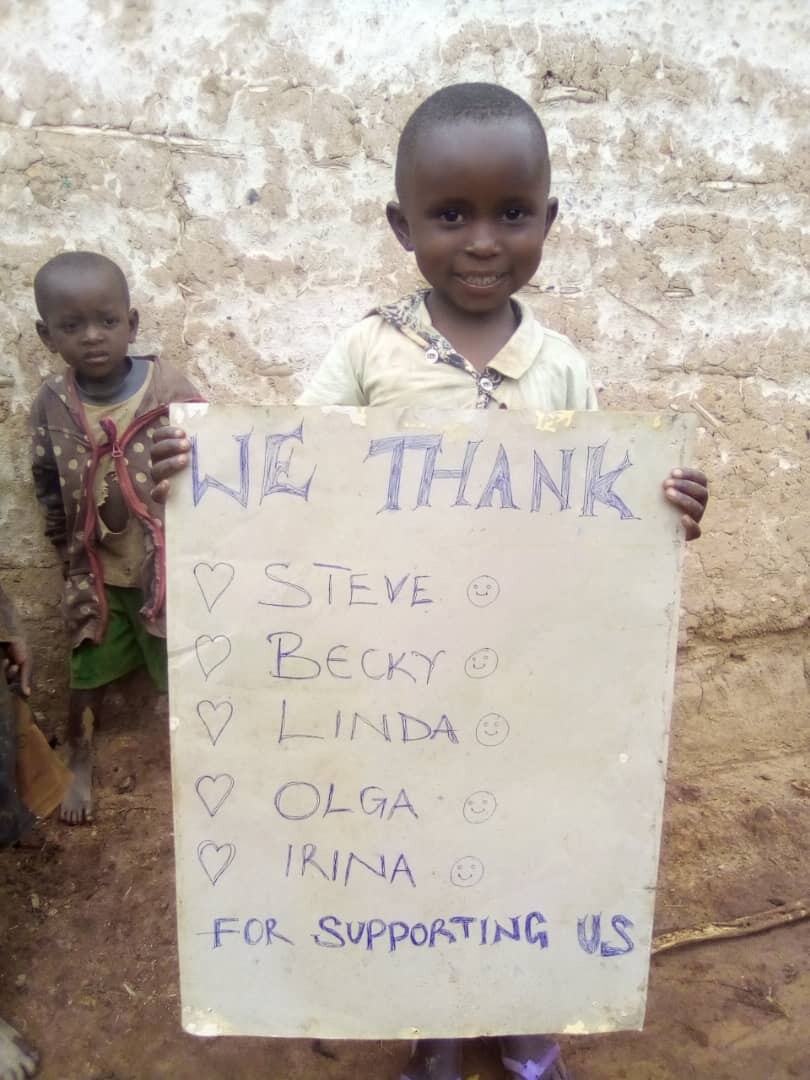 WE THANK
♡ STEVE ☺
♡ BECKY ☺
♡ LINDA ☺
♡ OLGA ☺
♡ IRINA ☺
FOR SUPPORTING US